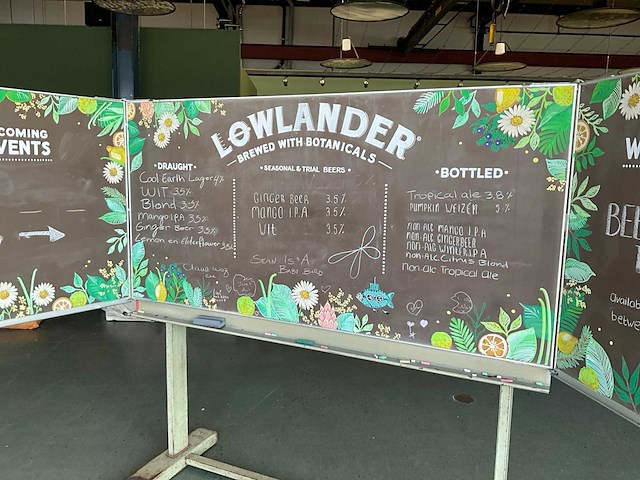 COMING
VENTS
LOWLANDER
BREWED WITH BOTANICALS
•DRAUGHT•
Cool Earth Lager 4%
WIT 3.5%
Blond 3.5%
mango IPA 3.5%
Ginger Beer 3.5%
Lemon en Elderflower 3.5%
•SEASONAL & TRIAL BEERS•
GINGER BEER 3.5%
MANGO I.P.A 3.5%
WIt 3.5%
Sean Is A
•BOTTLED•
Tropical ale 3.8%
PUMPKIN WEIZEN 5%
non-Alc MANGO I.P.A
non-Alc GINGERBEER
non-ALC WINTER I.P.A
non-Alc. Citrus Blond
non-Alc Tropical Ale
W
BEL
Availab
betwe